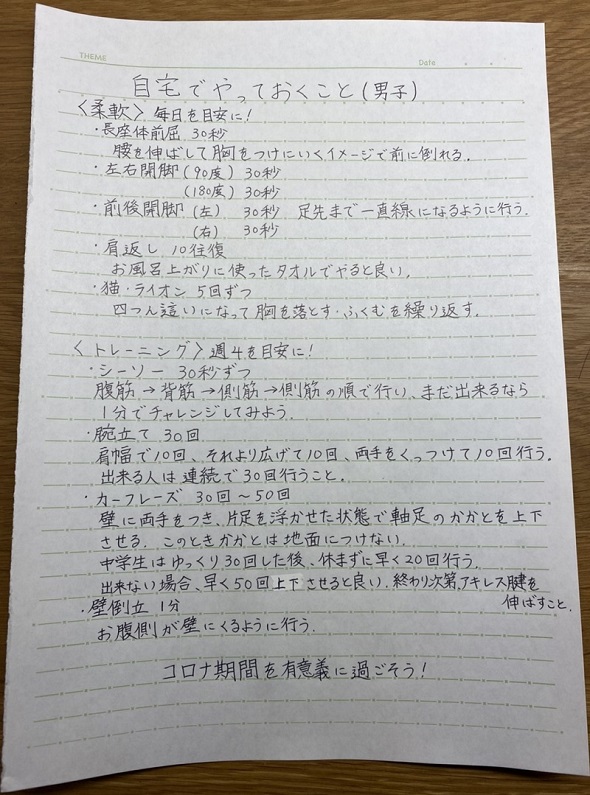 THEME
Date
自宅でやっておくこと(男子)
〈柔軟〉毎日を目安に!
・長座体前屈 30秒
腰を伸ばして胸をつけにいくイメージで前に倒れる.
・左右開脚(90度)30秒
(180度)30秒
・前後開脚(左) 30秒 足先まで一直線になるように行う.
(右) 30秒
・肩返し 10往復
お風呂上がりに使ったタオルでやると良い.
・猫・ライオン 5回ずつ
四つん這いになって胸を落とす・ふくむを繰り返す.
〈トレーニング〉週4を目安に!
・シーソー 30秒ずつ
腹筋→背筋→側筋→側筋の順で行い、まだ出来るなら
1分でチャレンジしてみよう.
・腕立て 30回
肩幅で10回、それより広げて10回、両手をくっつけて10回行う.
出来る人は連続で30回行うこと.
・カーフレーズ 30回〜50回
壁に両手をつき、片足を浮かせた状態で軸足のかかとを上下
させる. このときかかとは地面につけない.
中学生はゆっくり30回した後、休まずに早く20回行う.
出来ない場合、早く50回上下させると良い. 終わり次第、アキレス腱を
伸ばすこと.
・壁倒立 1分
お腹側が壁にくるように行う.
コロナ期間を有意義に過ごそう!